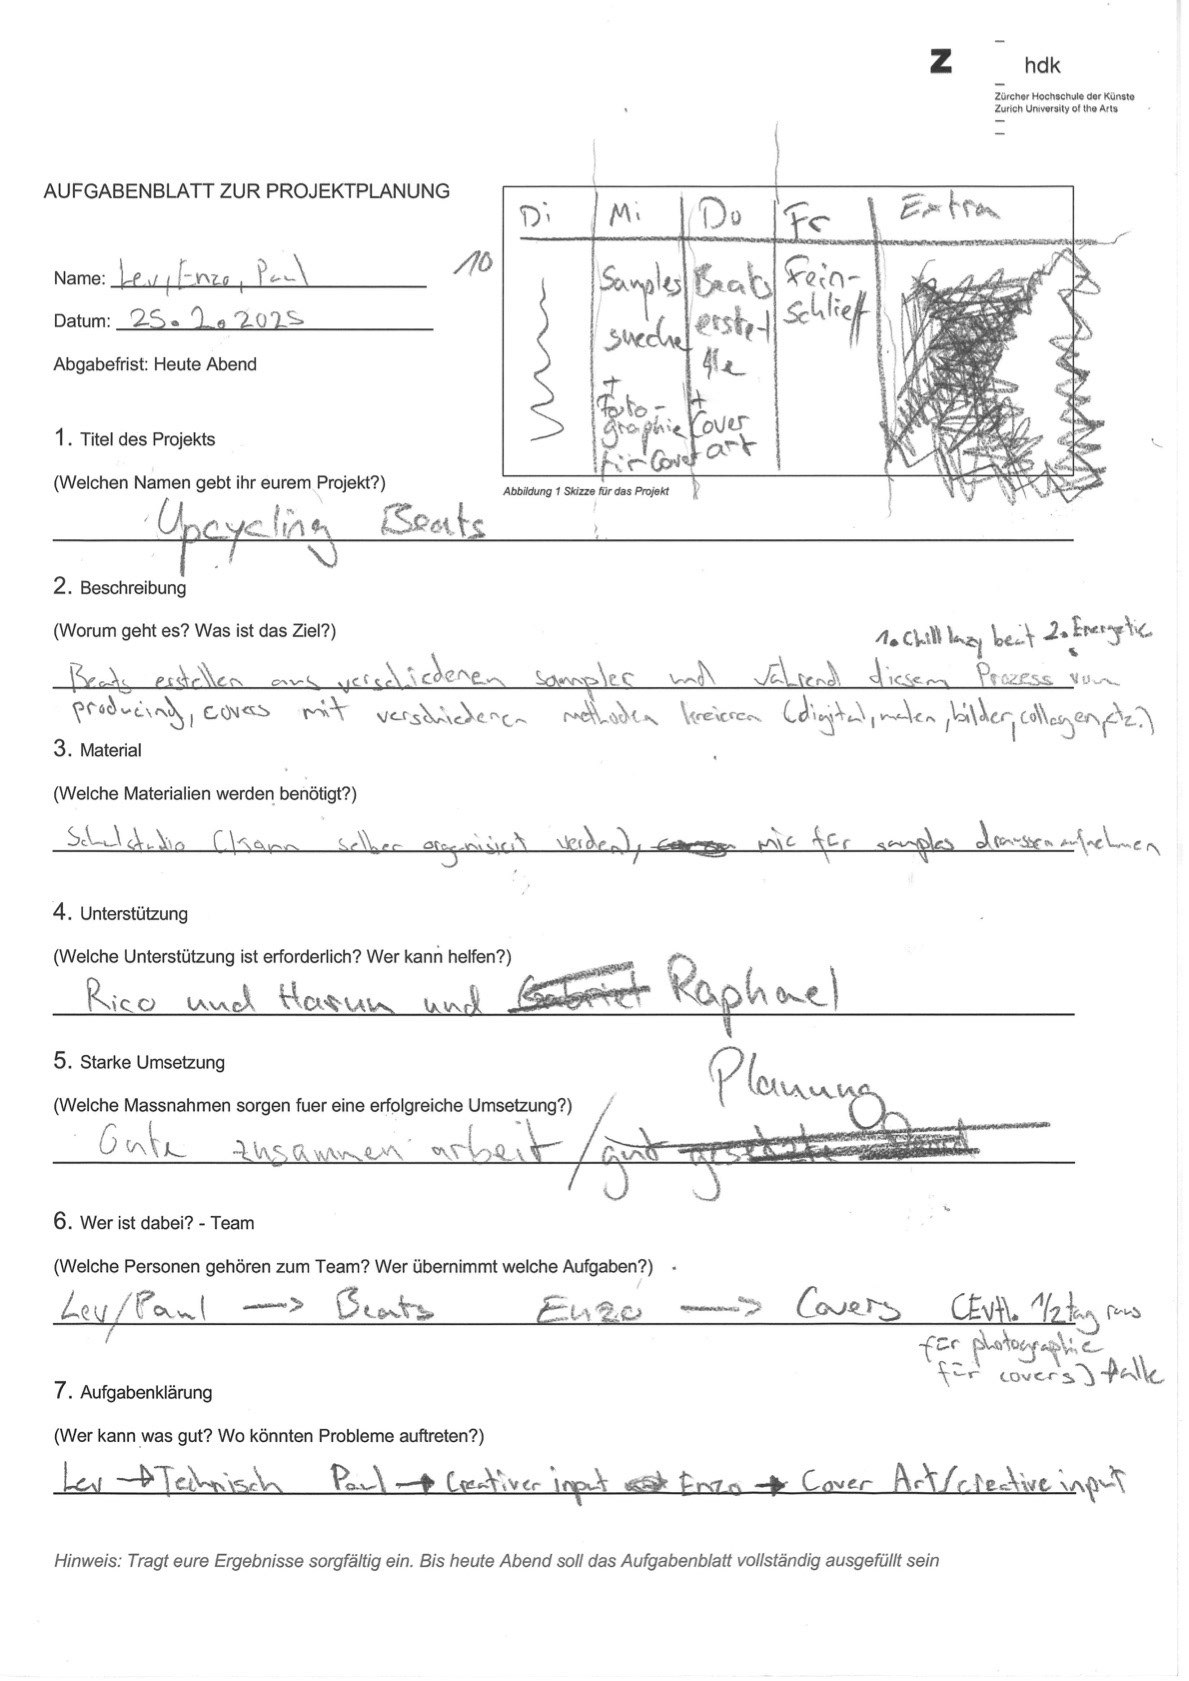 Z hdk
Zürcher Hochschule der Künste
Zurich University of the Arts
AUFGABENBLATT ZUR PROJEKTPLANUNG
Name: Lev, Enzo, Paul
Datum: 25.2.2025
Abgabefrist: Heute Abend
10
Di Mi Do Fr Extra
Samples
suche
+
Foto-
graphie
für Cover
Beats
erste-
lle
+
Cover
art
Fein-
schlieff
Abbildung 1 Skizze für das Projekt
1. Titel des Projekts
(Welchen Namen gebt ihr eurem Projekt?)
Upcycling Beats
2. Beschreibung
(Worum geht es? Was ist das Ziel?)
1. Chill lazy beat 2. Energetic
Beats erstellen aus verschiedenen sampler und während diesem Prozess vom
producing, covers mit verschiedenen methoden kreieren (digital, malen, bilder, collagen, etz.)
3. Material
(Welche Materialien werden benötigt?)
Schulstudio (kann selber organisiert werden), mic für samples draussen aufnehmen
4. Unterstützung
(Welche Unterstützung ist erforderlich? Wer kann helfen?)
Rico und Harun und Raphael
5. Starke Umsetzung
(Welche Massnahmen sorgen fuer eine erfolgreiche Umsetzung?)
Planung
Gute zusammen arbeit / gut
6. Wer ist dabei? - Team
(Welche Personen gehören zum Team? Wer übernimmt welche Aufgaben?)
Lev/Paul → Beats Enzo → Covers (Evtl. 1/2 tag raus
für photographie
für covers) #alle
7. Aufgabenklärung
(Wer kann was gut? Wo könnten Probleme auftreten?)
Lev → Technisch Paul → Creativer input Enzo → Cover Art/creative input
Hinweis: Tragt eure Ergebnisse sorgfältig ein. Bis heute Abend soll das Aufgabenblatt vollständig ausgefüllt sein